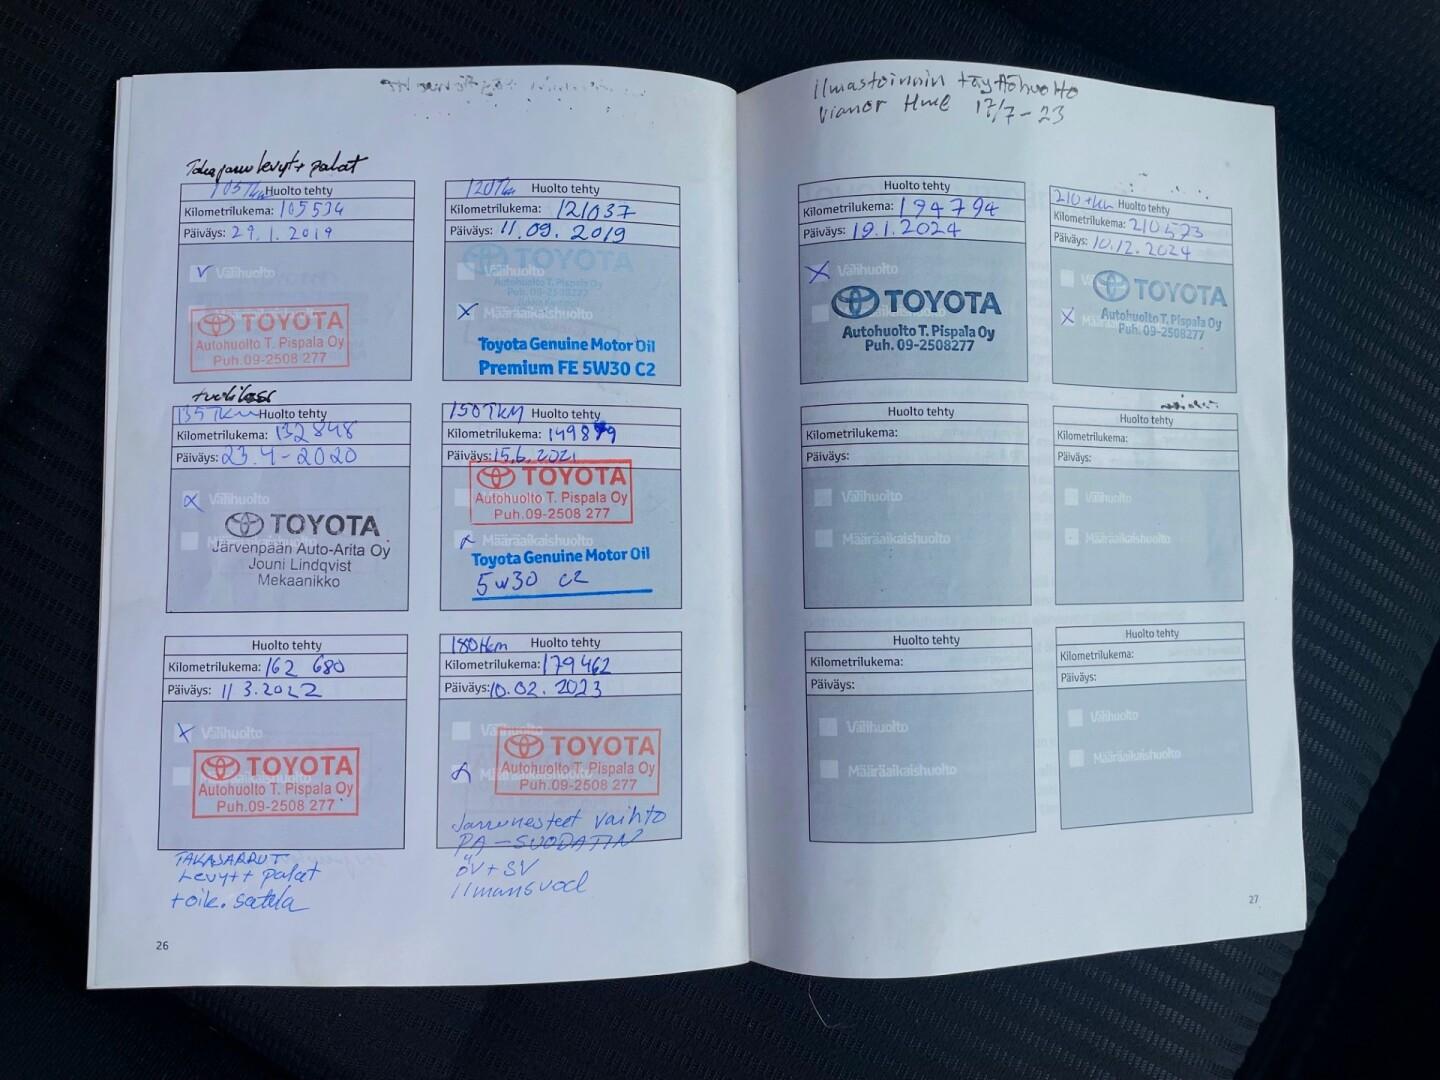 Takajarru levyt + palat
105Tkm Huolto tehty
Kilometrilukema: 105534
Päiväys: 29.1.2019
Välihuolto
TOYOTA
Autohuolto T. Pispala Oy
Puh.09-2508 277
120Tkm Huolto tehty
Kilometrilukema: 121037
Päiväys: 11.09.2019
Välihuolto
TOYOTA
Autohuolto T. Pispala Oy
Puh. 09-2508277
Määräaikaishuolto
Toyota Genuine Motor Oil
Premium FE 5W30 C2
135TKM Huolto tehty
Kilometrilukema: 132848
Päiväys: 23.4-2020
Välihuolto
TOYOTA
Järvenpään Auto-Arita Oy
Jouni Lindqvist
Mekaanikko
150TKM Huolto tehty
Kilometrilukema: 149879
Päiväys: 15.6.2021
TOYOTA
Autohuolto T. Pispala Oy
Puh.09-2508 277
Toyota Genuine Motor Oil
5w30 C2
Huolto tehty
Kilometrilukema: 162 680
Päiväys: 11 3.2022
Välihuolto
TOYOTA
Autohuolto T. Pispala Oy
Puh.09-2508 277
TAKAJARRUT
Levyt + palat
+ oik. satula
180tkm Huolto tehty
Kilometrilukema: 179462
Päiväys: 10.02.2023
TOYOTA
Autohuolto T. Pispala Oy
Puh.09-2508 277
Jarrunesteet vaihto
PA-SUODATIN
ÖV + SV
Ilmansuod
26
ilmastoinnin täyttöhuolto
Vianor Hml 17/7-23
Huolto tehty
Kilometrilukema: 194794
Päiväys: 19.1.2024
Välihuolto
TOYOTA
Autohuolto T. Pispala Oy
Puh. 09-2508277
210 tkm Huolto tehty
Kilometrilukema: 210573
Päiväys: 10.12.2024
TOYOTA
Autohuolto T. Pispala Oy
Puh. 09-2508277
Huolto tehty
Kilometrilukema:
Päiväys:
Välihuolto
Määräaikaishuolto
Huolto tehty
Kilometrilukema:
Päiväys:
Välihuolto
Määräaikaishuolto
Huolto tehty
Kilometrilukema:
Päiväys:
Välihuolto
Määräaikaishuolto
Huolto tehty
Kilometrilukema:
Päiväys:
Välihuolto
Määräaikaishuolto
27